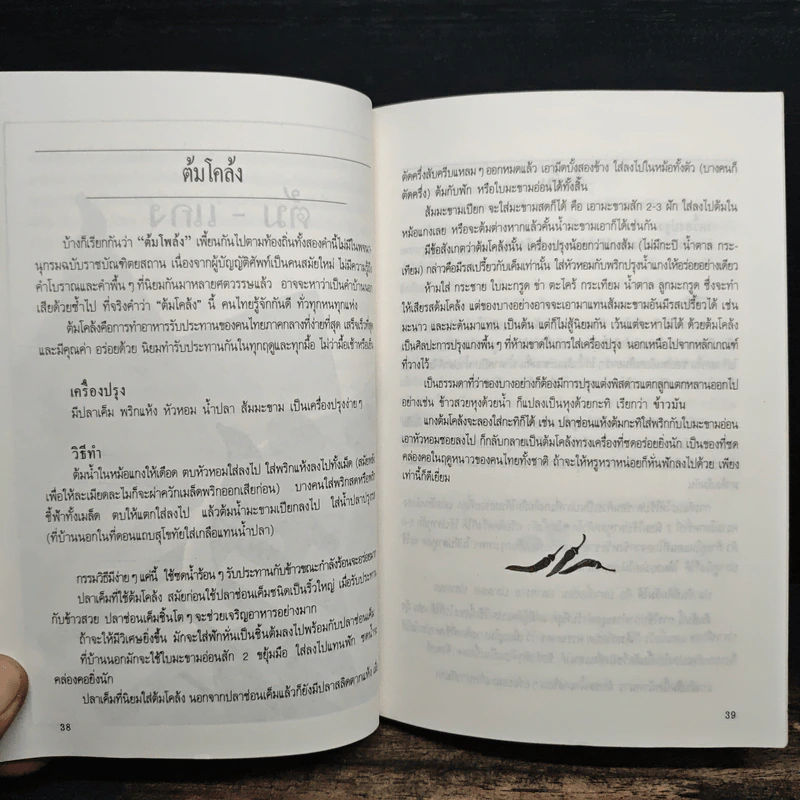 ต้มโคล้ง
บ้างก็เรียกกันว่า “ต้มโพล้ง” เพี้ยนกันไปตามท้องถิ่นทั้งสองคำนี้ไม่มีในพจนา
นุกรมฉบับราชบัณฑิตยสถาน เนื่องจากผู้บัญญัติศัพท์เป็นคนสมัยใหม่ ไม่มีความรู้ถึง
คำโบราณและคำพื้น ๆ ที่นิยมกันมาหลายศตวรรษแล้ว อาจจะหาว่าเป็นคำบ้านนอก
เสียด้วยซ้ำไป ที่จริงคำว่า “ต้มโคล้ง” นี้ คนไทยรู้จักกันดี ทั่วทุกหนทุกแห่ง
ต้มโคล้งคือการทำอาหารรับประทานของคนไทยภาคกลางที่ง่ายที่สุด เสร็จเร็วที่สุด
และมีคุณค่า อร่อยด้วย นิยมทำรับประทานกันในทุกฤดูและทุกมื้อ ไม่ว่ามื้อเช้าหรือเย็น
เครื่องปรุง
มีปลาเค็ม พริกแห้ง หัวหอม น้ำปลา ส้มมะขาม เป็นเครื่องปรุงง่าย ๆ
วิธีทำ
ต้มน้ำในหม้อแกงให้เดือด ตบหัวหอมใส่ลงไป ใส่พริกแห้งลงไปทั้งเม็ด (สมัยหลัง
เพื่อให้ละเมียดละไมก็จะผ่าควักเมล็ดพริกออกเสียก่อน) บางคนใส่พริกสดหรือพริก
ชี้ฟ้าทั้งเมล็ด ตบให้แตกใส่ลงไป แล้วต้มน้ำมะขามเปียกลงไป ใส่น้ำปลาปรุงรส
(ที่บ้านนอกในที่ดอนแถบสุโขทัยใส่เกลือแทนน้ำปลา)
กรรมวิธีมีง่าย ๆ แค่นี้ ใช้ซดน้ำร้อน ๆ รับประทานกับข้าวขณะกำลังร้อนจะอร่อยมาก
ปลาเค็มที่ใช้ต้มโคล้ง สมัยก่อนใช้ปลาช่อนเค็มชนิดเป็นริ้วใหญ่ เมื่อรับประทาน
กับข้าวสวย ปลาช่อนเค็มชิ้นโต ๆ จะช่วยเจริญอาหารอย่างมาก
ถ้าจะให้มีวิเศษยิ่งขึ้น มักจะใส่ฟักหั่นเป็นชิ้นต้มลงไปพร้อมกับปลาช่อนเค็ม
ที่บ้านนอกมักจะใช้ใบมะขามอ่อนสัก 2 ขยุ้มมือ ใส่ลงไปแทนฟัก ซดน้ำ
คล่องคอยิ่งนัก
ปลาเค็มที่นิยมใส่ต้มโคล้ง นอกจากปลาช่อนเค็มแล้วก็ยังมีปลาสลิดตากแห้ง
38
ตัดครึ่งสับครีบแหลม ๆ ออกหมดแล้ว เอามีดบั้งสองข้าง ใส่ลงไปในหม้อทั้งตัว (บางคนก็
ตัดครึ่ง) ต้มกับฟัก หรือใบมะขามอ่อนได้ทั้งสิ้น
ส้มมะขามเปียก จะใส่มะขามสดก็ได้ คือ เอามะขามสัก 2-3 ฝัก ใส่ลงไปต้มใน
หม้อแกงเลย หรือจะต้มต่างหากแล้วคั้นน้ำมะขามเอาก็ได้เช่นกัน
มีข้อสังเกตว่าต้มโคล้งนั้น เครื่องปรุงน้อยกว่าแกงส้ม (ไม่มีกะปิ น้ำตาล กระ-
เทียม) กล่าวคือมีรสเปรี้ยวกับเค็มเท่านั้น ใส่หัวหอมกับพริกปรุงน้ำแกงให้อร่อยอย่างเดียว
ห้ามใส่ กระชาย ใบมะกรูด ข่า ตะไคร้ กระเทียม น้ำตาล ลูกมะกรูด ซึ่งจะทำ
ให้เสียรสต้มโคล้ง แต่ของบางอย่างอาจจะเอามาแทนส้มมะขามอันมีรสเปรี้ยวได้ เช่น
มะนาว และมะดันมาแทน เป็นต้น แต่ก็ไม่สู้นิยมกัน เว้นแต่จะหาไม่ได้ ด้วยต้มโคล้ง
เป็นศิลปะการปรุงแกงพื้น ๆ ที่ห้ามขาดในการใส่เครื่องปรุง นอกเหนือไปจากหลักเกณฑ์
ที่วางไว้
เป็นธรรมดาที่ว่าของบางอย่างก็ต้องมีการปรุงแต่งพิสดารแตกลูกแตกหลานออกไป
อย่างเช่น ข้าวสวยหุงด้วยน้ำ ก็แปลงเป็นหุงด้วยกะทิ เรียกว่า ข้าวมัน
แกงต้มโคล้งจะลองใส่กะทิก็ได้ เช่น ปลาช่อนแห้งต้มกะทิใส่พริกกับใบมะขามอ่อน
เอาหัวหอมซอยลงไป ก็กลับกลายเป็นต้มโคล้งทรงเครื่องที่ซดอร่อยยิ่งนัก เป็นของที่ซด
คล่องคอในฤดูหนาวของคนไทยทั้งชาติ ถ้าจะให้หรูหราหน่อยก็หั่นฟักลงไปด้วย เพียง
เท่านี้ก็ดีเยี่ยม
39